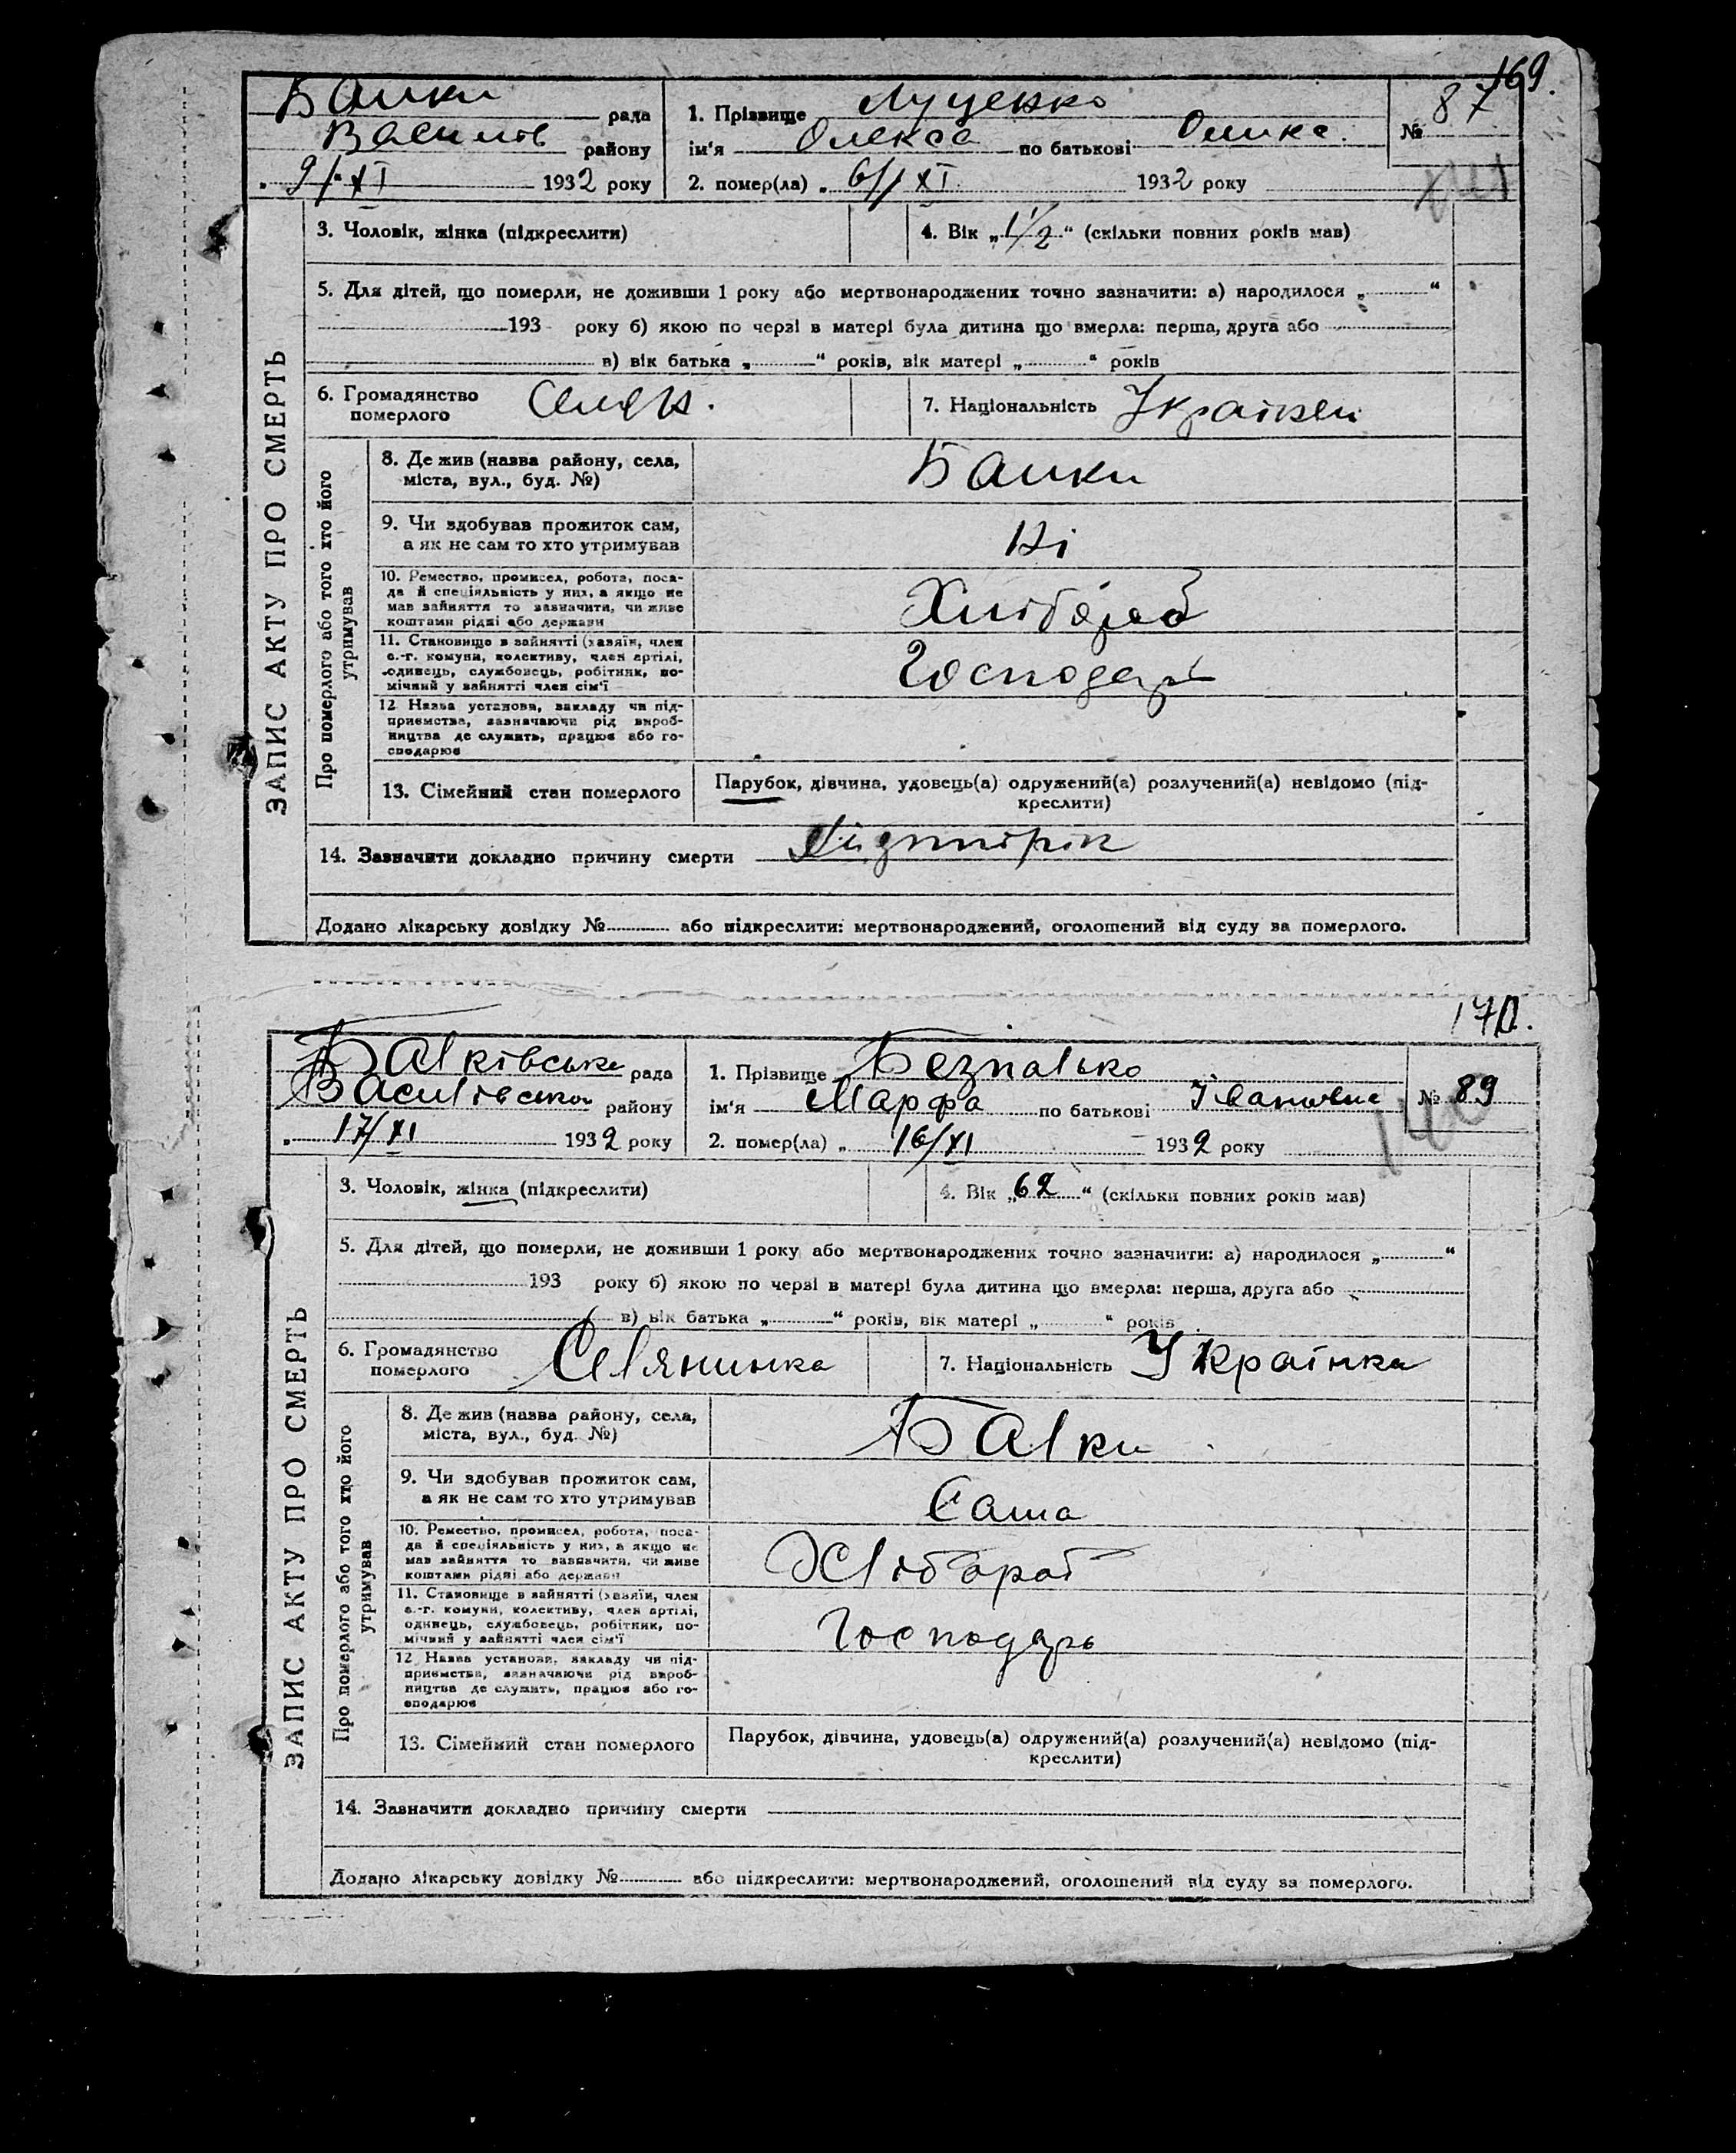 169.
Балки рада
Василів району
9/XI 1932 року
1. Прізвище Луценко
ім'я Олекса по батькові Олике.
2. помер(ла) „ 6/XI 1932 року
№ 87
ЗАПИС АКТУ ПРО СМЕРТЬ
3. Чоловік, жінка (підкреслити)
4. Вік „1 1/2“ (скільки повних років мав)
5. Для дітей, що померли, не доживши 1 року або мертвонароджених точно зазначити: а) народилося „ “
193 року б) якою по черзі в матері була дитина що вмерла: перша, друга або
в) вік батька „ “ років, вік матері „ “ років
6. Громадянство
померлого Селян.
7. Національність Українец
Про померлого або того хто його
утримував
8. Де жив (назва району, села,
міста, вул., буд. №) Балки
9. Чи здобував прожиток сам,
а як не сам то хто утримував Ні
10. Ремество, промисел, робота, поса-
да й спеціяльність у них, а якщо не
мав зайняття то зазначити, чи живе
коштами рідні або держави Хлібороб
11. Становище в зайнятті (хазяїн, член
с.-г. комуни, колективу, член артілі,
одинець, службовець, робітник, по-
мічний у зайнятті член сім'ї Господарь
12 Назва установи, закладу чи під-
приємства, зазначаючи рід вироб-
ництва де служить, працює або го-
сподарює
13. Сімейний стан померлого
Парубок, дівчина, удовець(а) одружений(а) розлучений(а) невідомо (під-
креслити)
14. Зазначити докладно причину смерти
Додано лікарську довідку № або підкреслити: мертвонароджений, оголошений від суду за померлого.
170.
Балківська рада
Василівського району
17/XI 1932 року
1. Прізвище Безпалько
ім'я Марфа по батькові Івановна
2. помер(ла) „ 16/XI 1932 року
№ 89
ЗАПИС АКТУ ПРО СМЕРТЬ
3. Чоловік, жінка (підкреслити)
4. Вік „62“ (скільки повних років мав)
5. Для дітей, що померли, не доживши 1 року або мертвонароджених точно зазначити: а) народилося „ “
193 року б) якою по черзі в матері була дитина що вмерла: перша, друга або
в) вік батька „ “ років, вік матері „ “ років
6. Громадянство
померлого Селянинка
7. Національність Українка
Про померлого або того хто його
утримував
8. Де жив (назва району, села,
міста, вул., буд. №) Балки
9. Чи здобував прожиток сам,
а як не сам то хто утримував Сама
10. Ремество, промисел, робота, поса-
да й спеціяльність у них, а якщо не
мав зайняття то зазначити, чи живе
коштами рідні або держави Хлібороб
11. Становище в зайнятті (хазяїн, член
с.-г. комуни, колективу, член артілі,
одинець, службовець, робітник, по-
мічний у зайнятті член сім'ї Господарь
12 Назва установи, закладу чи під-
приємства, зазначаючи рід вироб-
ництва де служить, працює або го-
сподарює
13. Сімейний стан померлого
Парубок, дівчина, удовець(а) одружений(а) розлучений(а) невідомо (під-
креслити)
14. Зазначити докладно причину смерти
Додано лікарську довідку № або підкреслити: мертвонароджений, оголошений від суду за померлого.